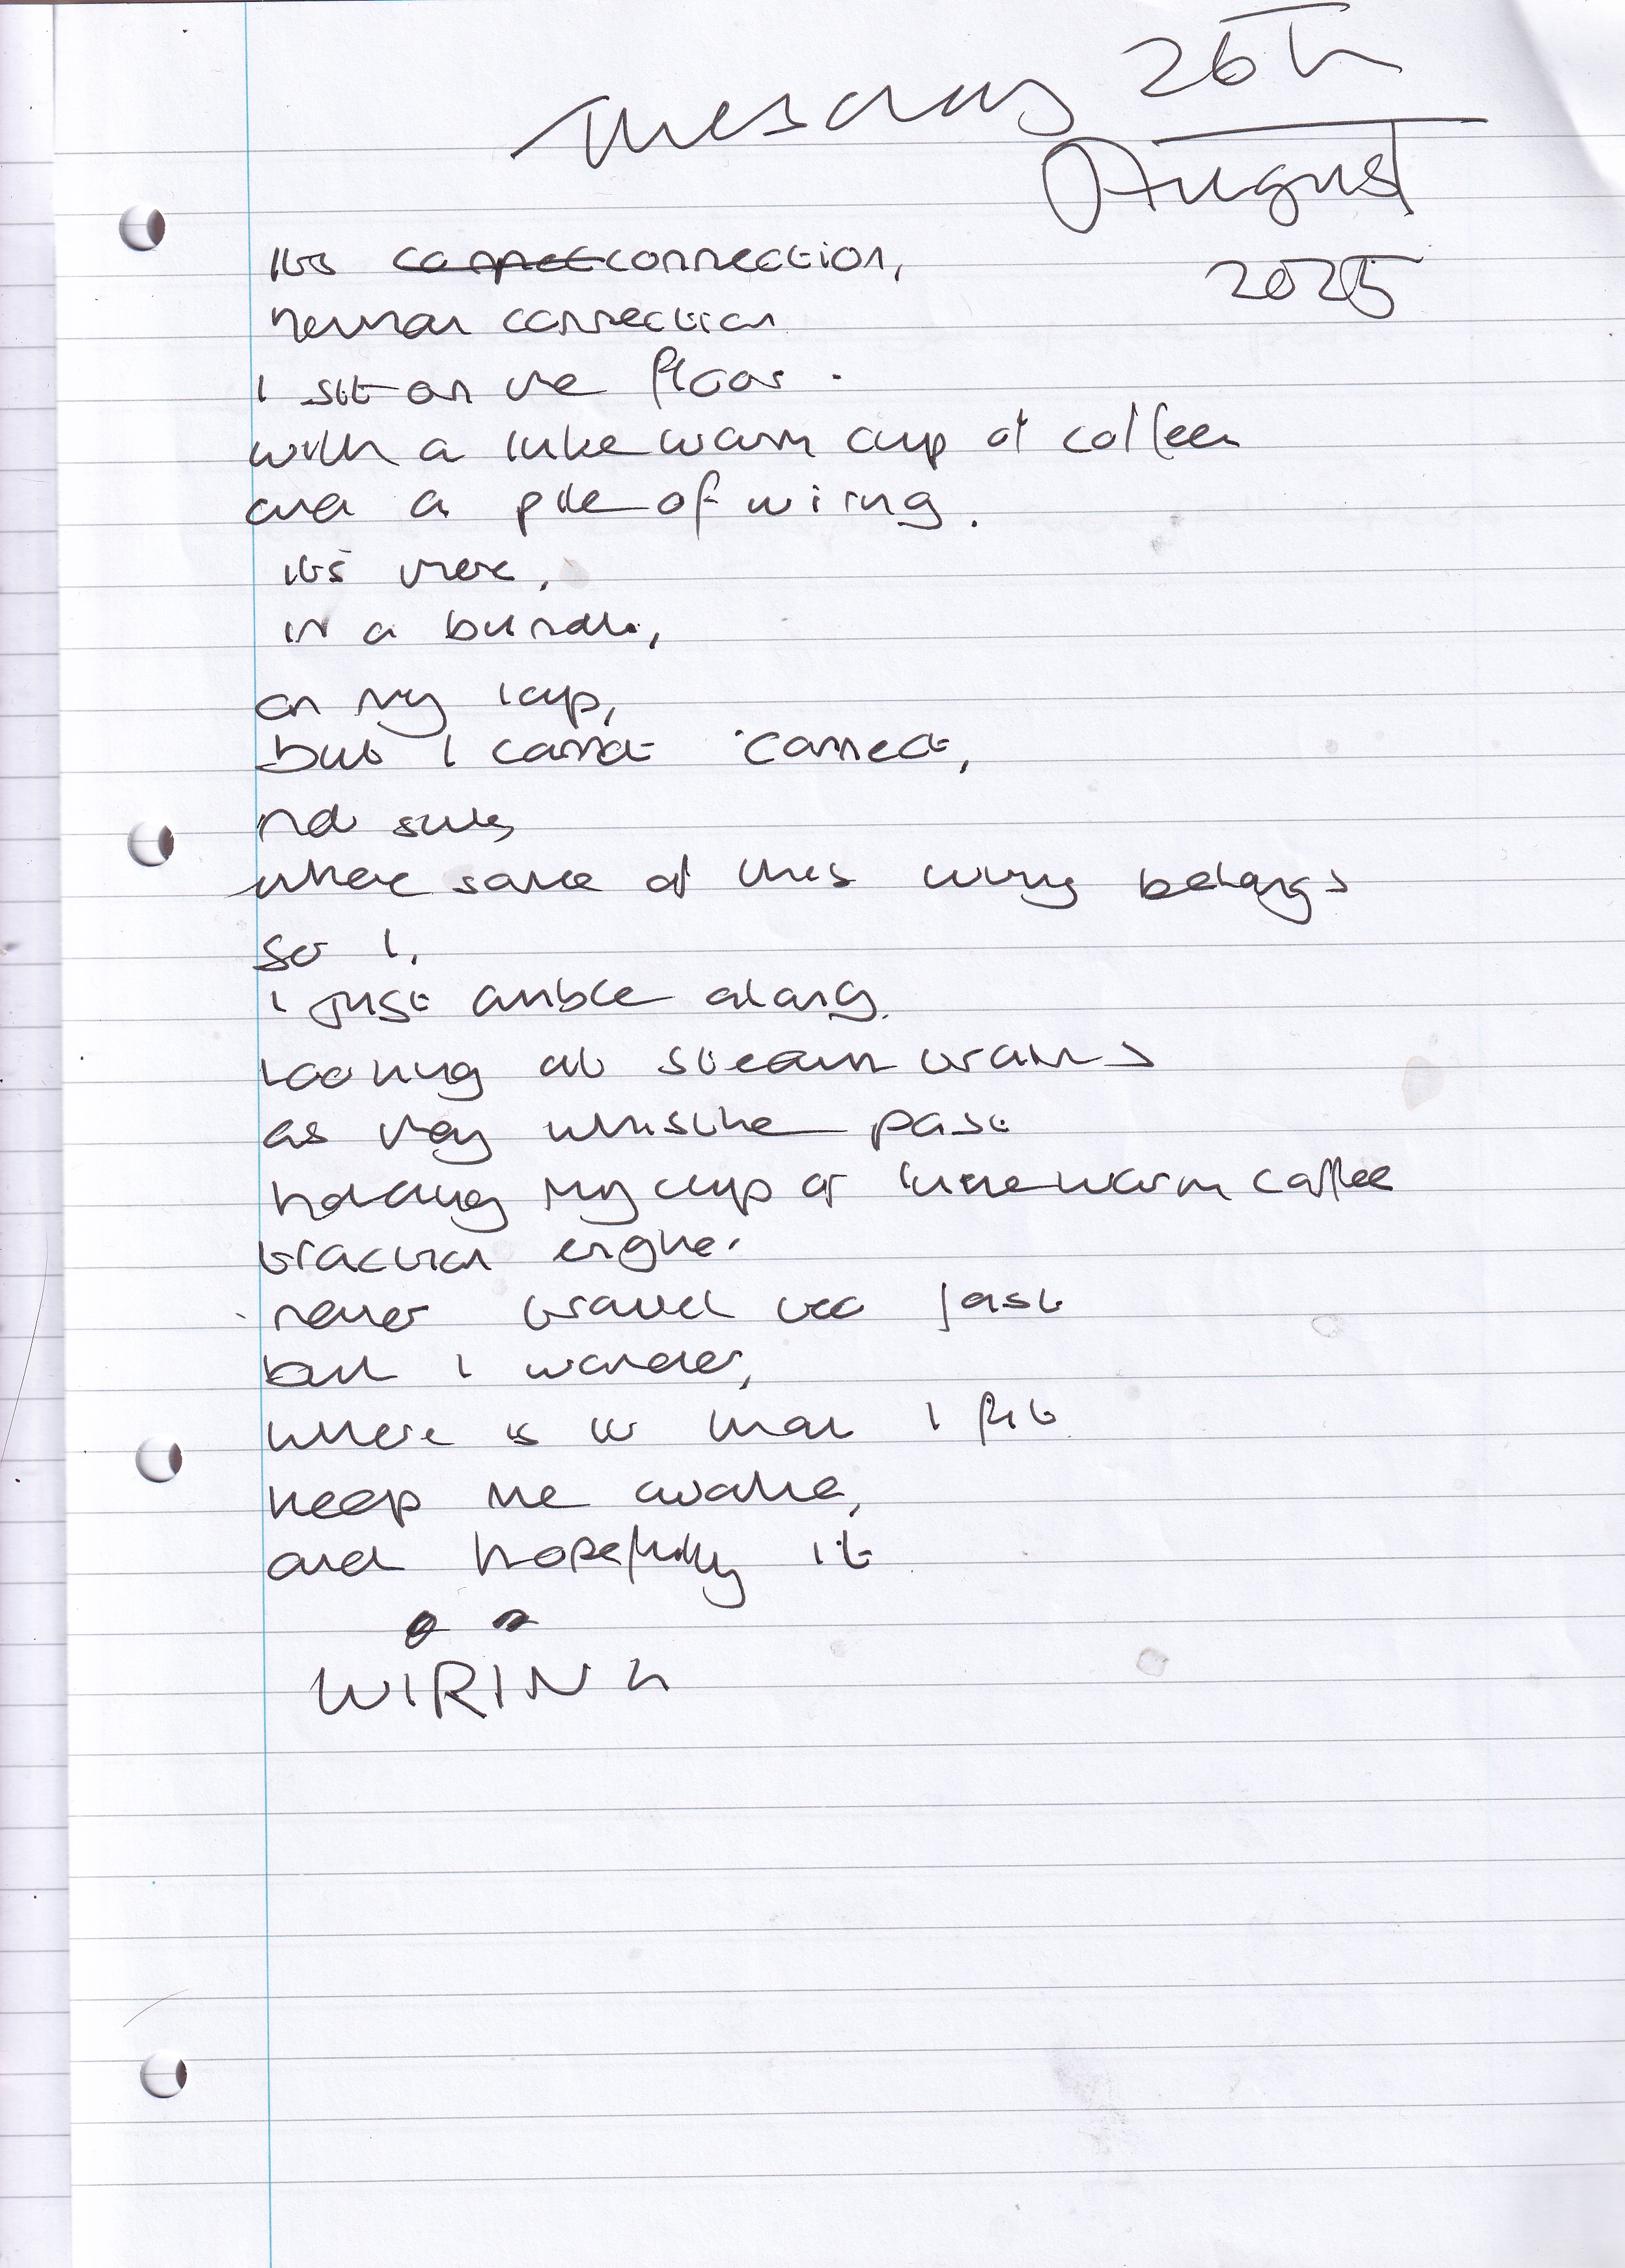 Tuesday 26th
August
2025
its connect connection,
human connection
I sit on the floor.
with a luke warm cup of coffee
and a pile of wiring.
its there,
in a bundle,
on my lap,
but I cannot connect,
not sure,
where some of this wiring belongs
so I,
I just amble along.
looking at steam trains
as they whistle past
holding my cup of lukewarm coffee
traction engine.
never travel too fast
but I wonder,
where is it that I fit
keep me awake,
and hopefully it
WIRING